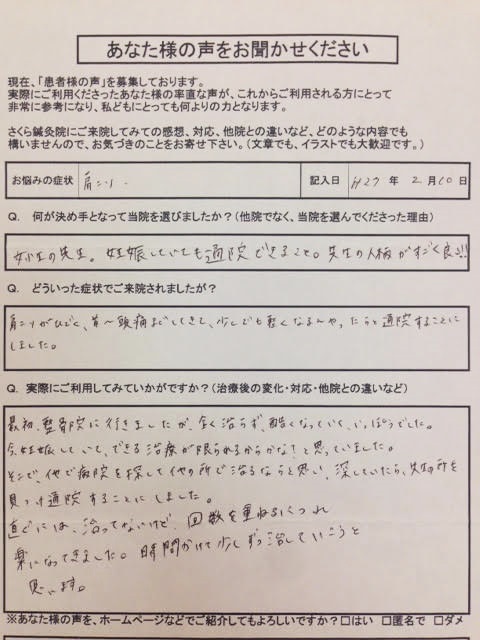 あなた様の声をお聞かせください
現在、「患者様の声」を募集しております。
実際にご利用くださったあなた様の率直な声が、これからご利用される方にとって
非常に参考になり、私どもにとっても何よりの力となります。
さくら鍼灸院にご来院してみての感想、対応、他院との違いなど、どのような内容でも
構いませんので、お気づきのことをお寄せ下さい。（文章でも、イラストでも大歓迎です。）
お悩みの症状 肩こり. 記入日 H27 年 2 月 10 日
Q. 何が決め手となって当院を選びましたか？（他院でなく、当院を選んでくださった理由）
女性の先生。妊娠していても通院できること。先生の人柄がすごく良い!!
Q. どういった症状でご来院されましたか？
肩こりがひどく、首〜頭痛までしてきて、少しでも軽くなるんやったらと通院することに
しました。
Q. 実際にご利用してみていかがですか？（治療後の変化・対応・他院との違いなど）
最初、整骨院に行きましたが、全く治らず、酷くなっていく、いっぽうでした。
今、妊娠していて、できる治療が限られるからかな？と思っていました。
そこで、他で病院を探して他の所で治るならと思い、探していたら、先生の所を
見つけ通院することにしました。
直ぐには、治ってないけど、回数を重ねるにつれ
楽になってきました。時間かけて少しずつ治していこうと
思います。
※あなた様の声を、ホームページなどでご紹介してもよろしいですか？□はい □匿名で □ダメ